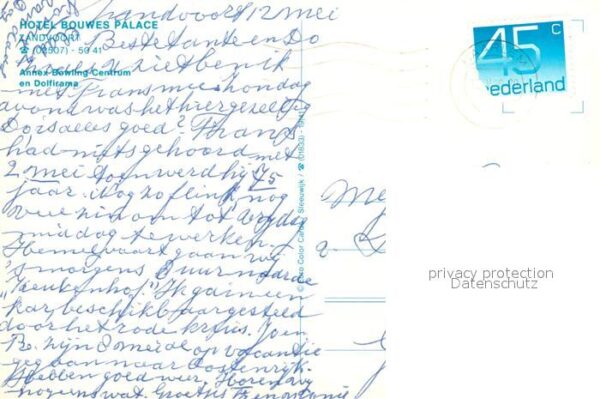 Zandvoort 12 mei
HOTEL BOUWES PALACE
ZANDVOORT
☎ (02507) - 50 41
Annex Bowling-Centrum
en Dolfirama
Beste tante en Do
U ziet ben ik
met Frans mee. Zondag
avond was het hier gezellig
alles goed? Frans
had niets gehoord met
2 mei toen werd hij 75
jaar. Nog zo flink, nog
zin om tot
middag te werken.
Hemelvaart gaan wij
's morgens 9 uur naar de
"Keukenhof." Ik ga in een
kar beschikbaar gesteld
door het rode kruis. Jo en
B. zijn 8 mei al op vacantie
gegaan naar Oostenrijk.
Hebben goed weer. Horen wij
nog eens wat. Groetjes
45 c
nederland
© Muva Color Card Sleeuwijk / ☎ (01833) -
Me
a
privacy protection
Datenschutz